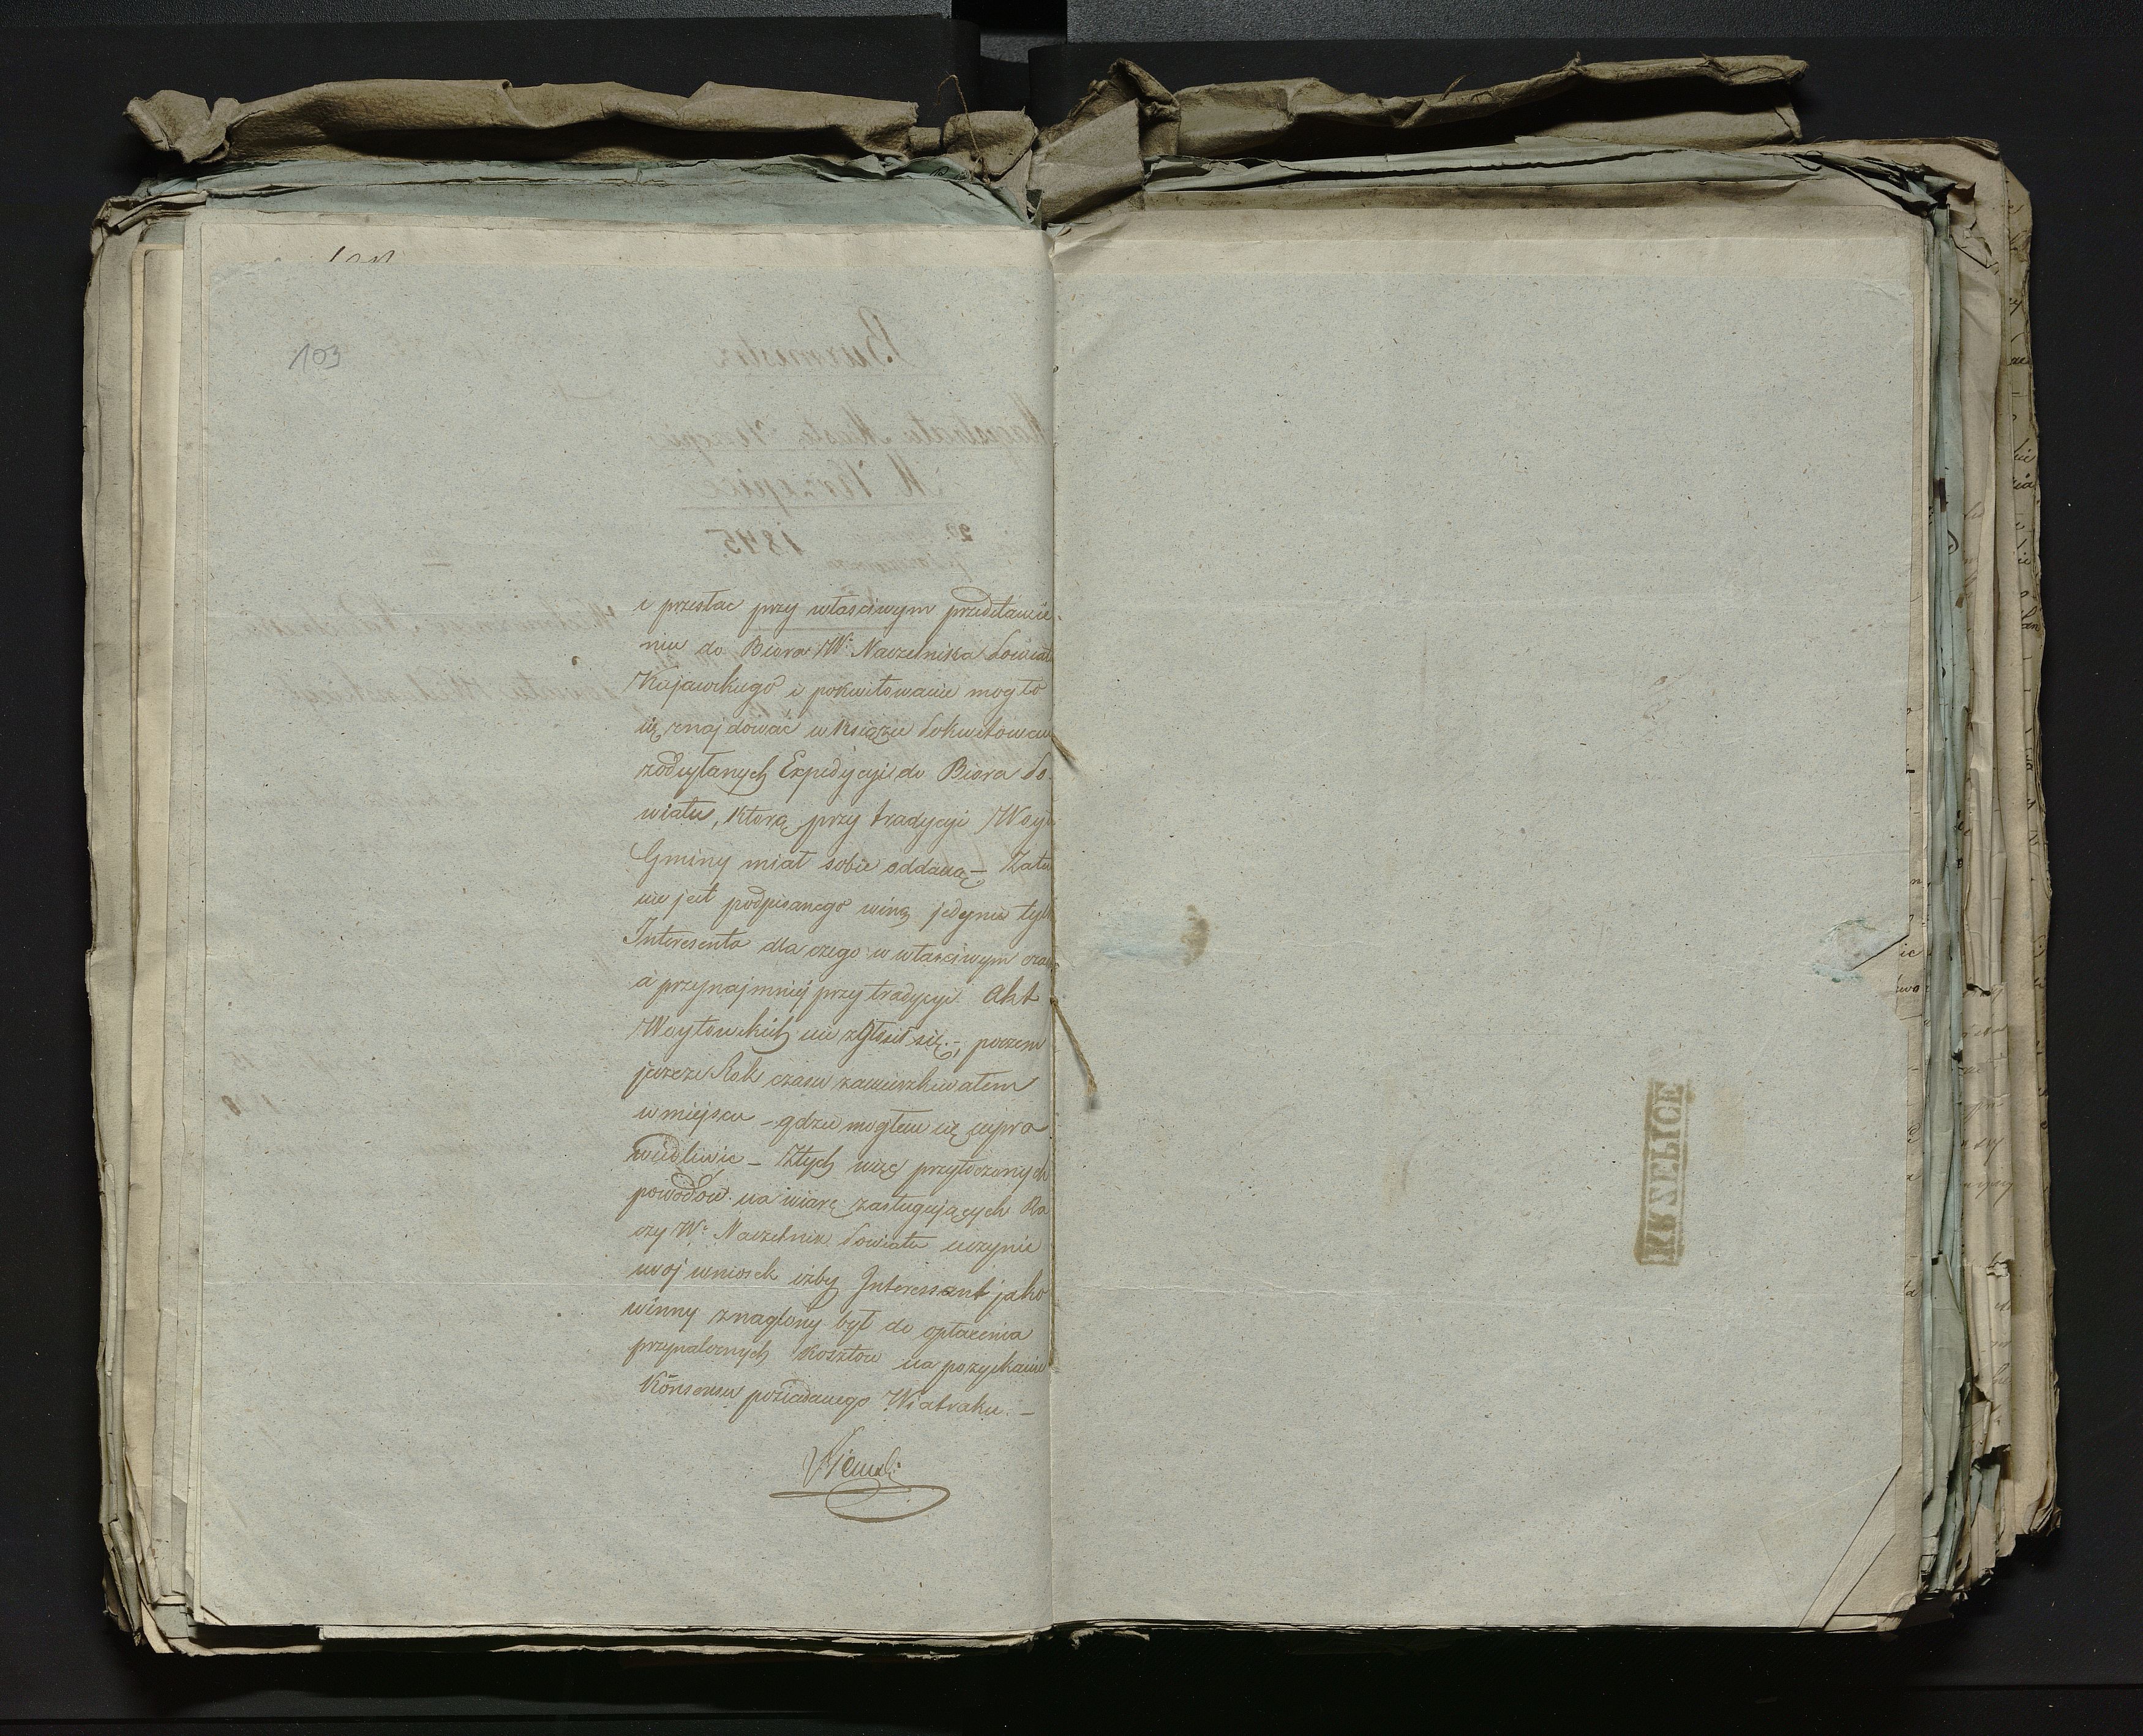 103
i przesłać przy właściwym przedstawie-
niu do Biora W° Naczelnika Powiatu
Kujawskiego i pokwitowanie mogło
się znajdować w Książce Pokwitowań
zodsyłanych Expedycyi do Biora Po-
wiatu, którą przy tradycyi Woyt
Gminy miał sobie oddaną – Zatem
nie jest podpisanego winą jedynie tylko
Interesenta dla czego w właściwym czasie
a przynajmniej przy tradycyi Akt
Woytowskich nie zgłosił się –, poczem
jeszcze Rok czasu zamieszkiwałem
w miejscu – gdzie mogłem się
– Ztych więc przytoczonych
powodów na wiarę zasługujących Ra
czy W° Naczelnik Powiatu uczynić
swoj wniosek iżby Interessant jako
winny znaglony był do opłacenia
przynależnych kosztów na pozyskanie
Konsensu posiadanego Wiatraku. –
KRZEPICE